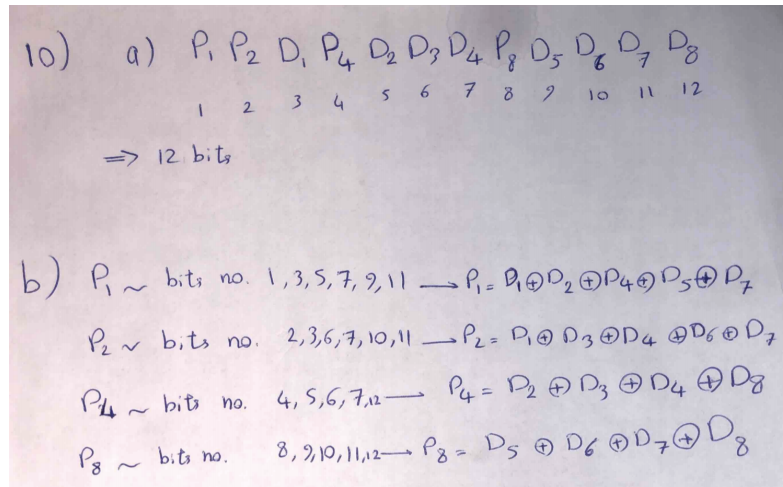 10) a) P₁ P₂ D₁ P₄ D₂ D₃ D₄ P₈ D₅ D₆ D₇ D₈
1 2 3 4 5 6 7 8 9 10 11 12
=> 12 bits
b) P₁ ~ bits no. 1,3,5,7,9,11 → P₁ = D₁⊕D₂⊕D₄⊕D₅⊕D₇
P₂ ~ bits no. 2,3,6,7,10,11 → P₂ = D₁⊕D₃⊕D₄⊕D₆⊕D₇
P₄ ~ bits no. 4,5,6,7,12 → P₄ = D₂⊕D₃⊕D₄⊕D₈
P₈ ~ bits no. 8,9,10,11,12 → P₈ = D₅⊕D₆⊕D₇⊕D₈